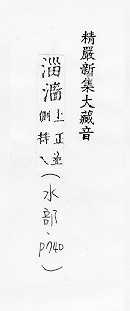 精嚴新集大藏音
淄
上正並
側持乀
(水部、p740)